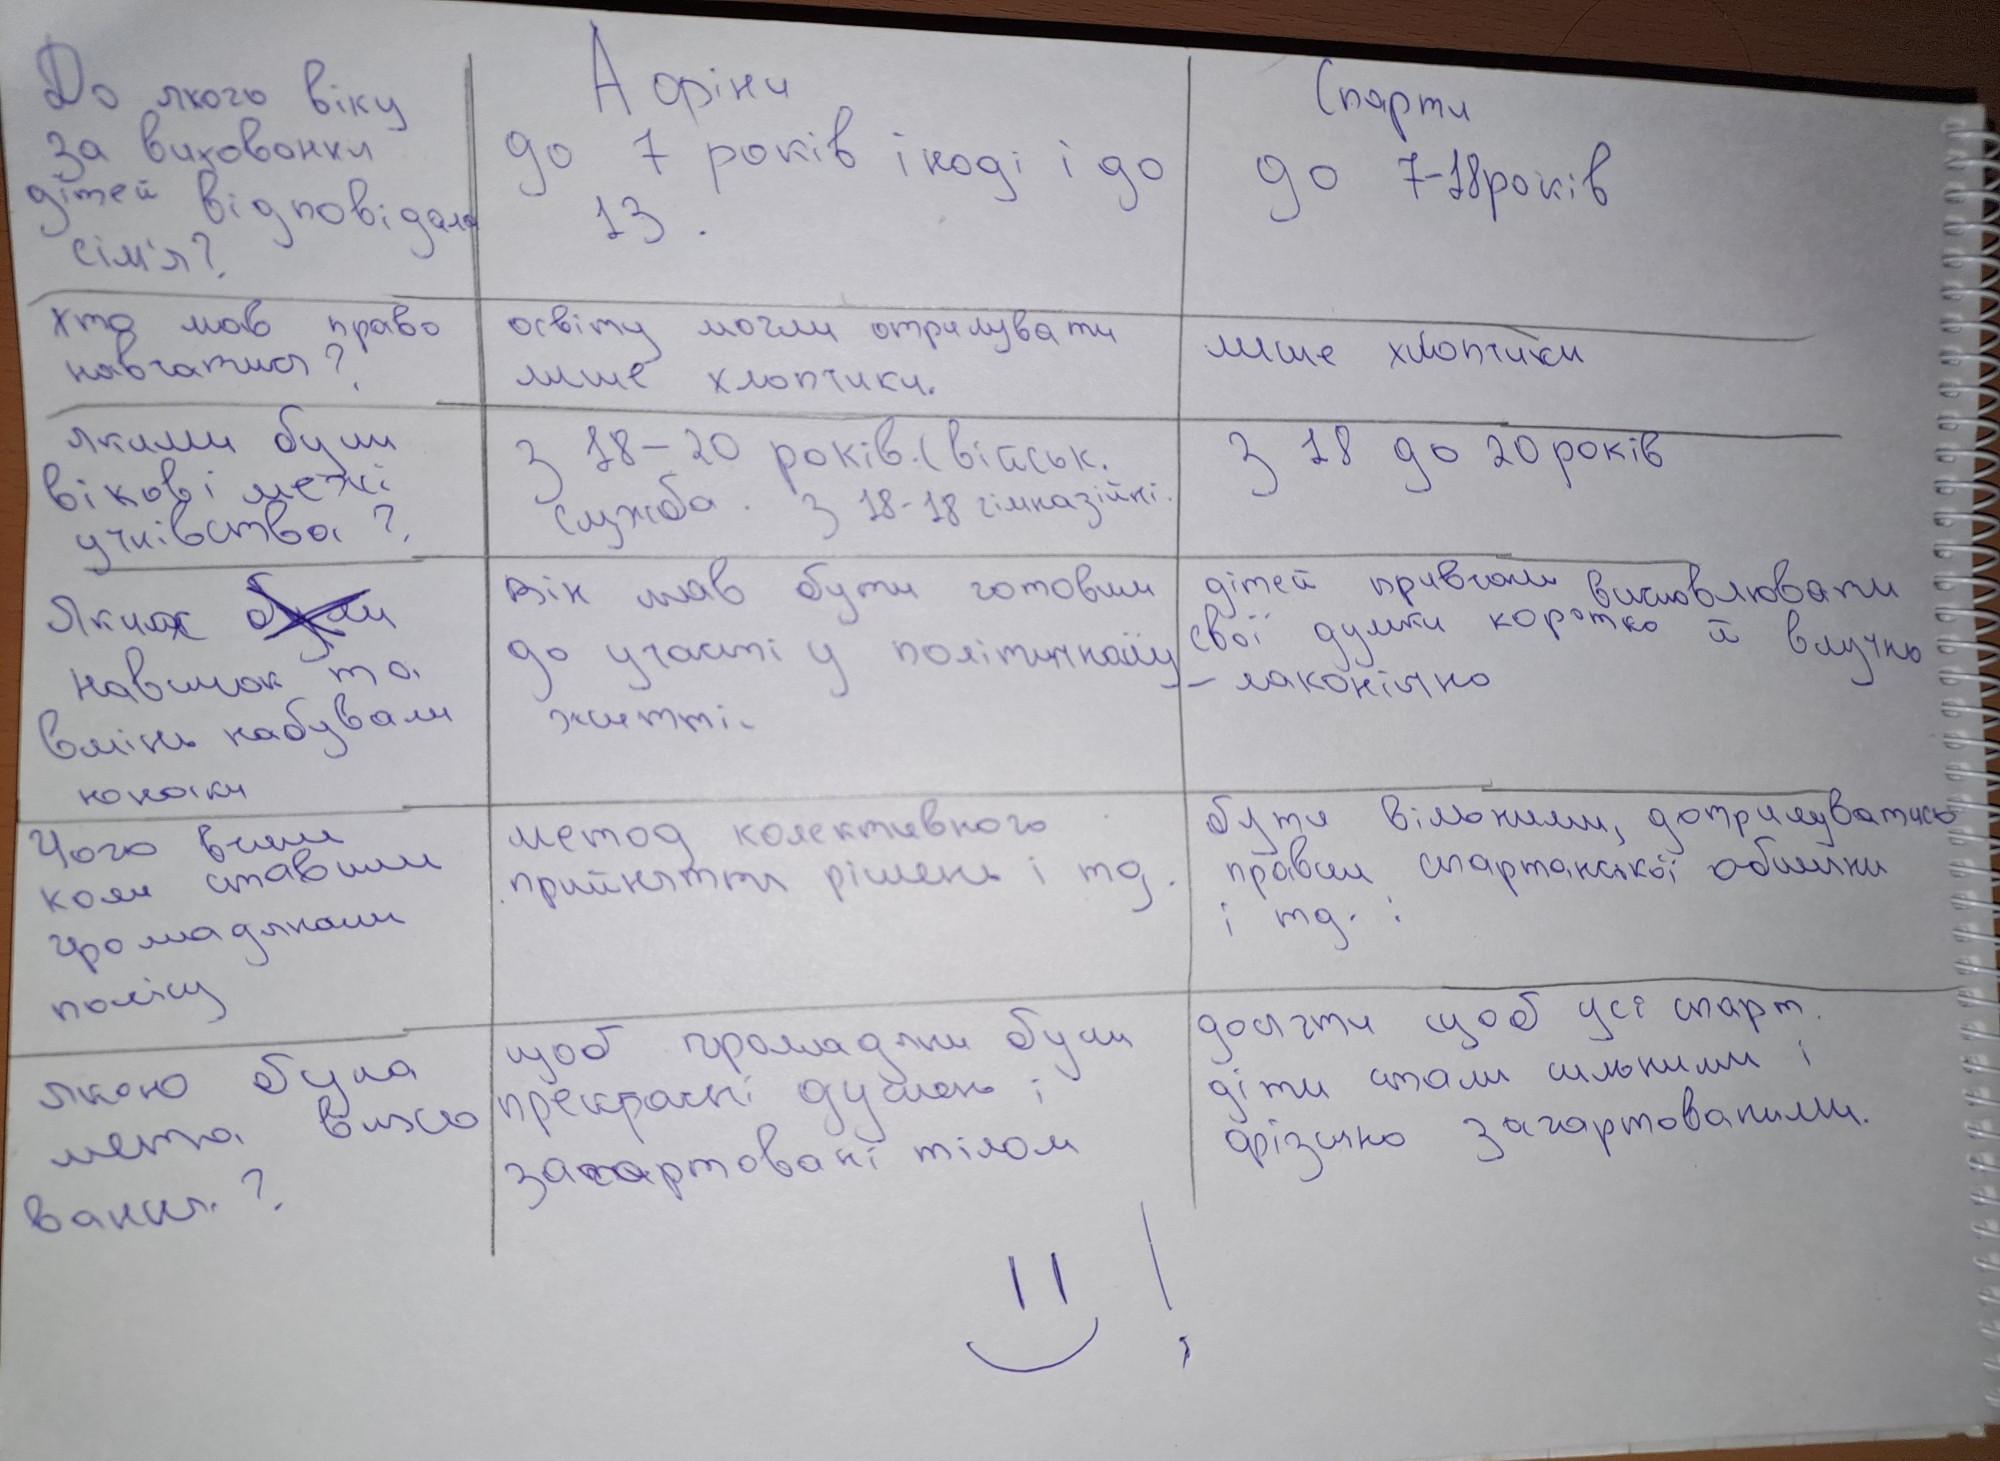 До якого віку
за виховання
дітей відповідала
сім'я?
Афіни
до 7 років іноді і до
13.
Спарти
до 7-18 років
хто мав право
навчатися?
освіту могли отримувати
лише хлопчики.
лише хлопчики
якими були
вікові межі
учнівства?
з 18-20 років.(військ.
служба. з 18-18 гімназійні.
з 18 до 20 років
Яких
навичок та
вмінь набували
юнаки
він мав бути готовим
до участі у політичному
житті.
дітей привчали висловлювати
свої думки коротко й влучно
- лаконічно
Чого вчили
коли ставили
громадянами
полісу
метод колективного
прийняття рішень і тд.
бути вільними, дотримуватись
правил спартанської общини
і тд.
якою була
мета вихо
вання?
щоб громадяни були
прекрасні душею і
загартовані тілом
досягти щоб усі спарт.
діти стали сильними і
фізично загартованими.